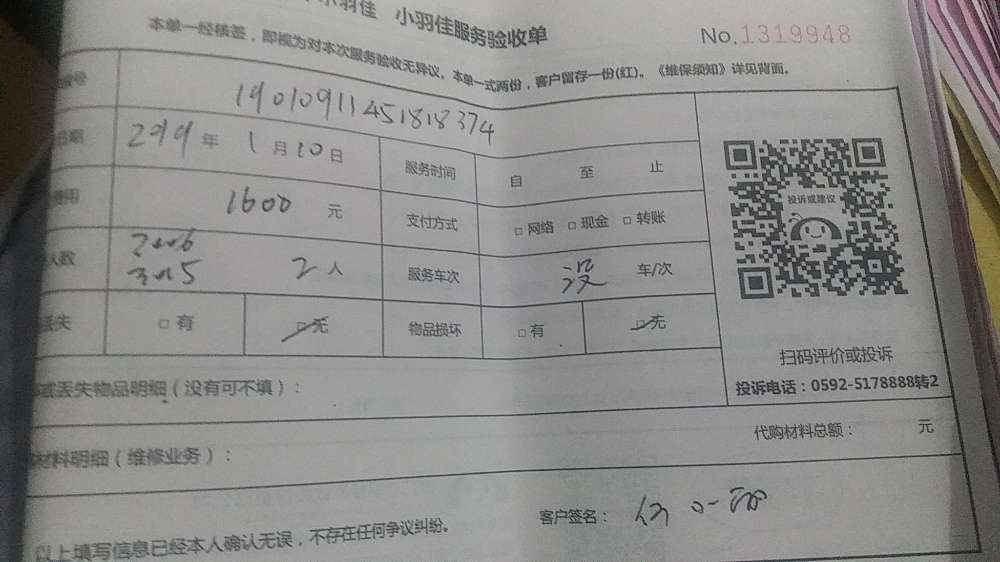 小羽佳 小羽佳服务验收单
No.1319948
本单一经核签，即视为对本次服务验收无异议。本单一式两份，客户留存一份(红)。《维保须知》详见背面。
号 19010911451818374
日期 2019年 1月10日 服务时间 自 至 止
费用 1600 元 支付方式 □网络 □现金 □转账
人数 2人 服务车次 没 车/次
丢失 □有 □无 物品损坏 □有 □无
投诉或建议
扫码评价或投诉
投诉电话：0592-5178888转2
或丢失物品明细（没有可不填）：
材料明细（维修业务）： 代购材料总额： 元
以上填写信息已经本人确认无误，不存在任何争议纠纷。 客户签名：